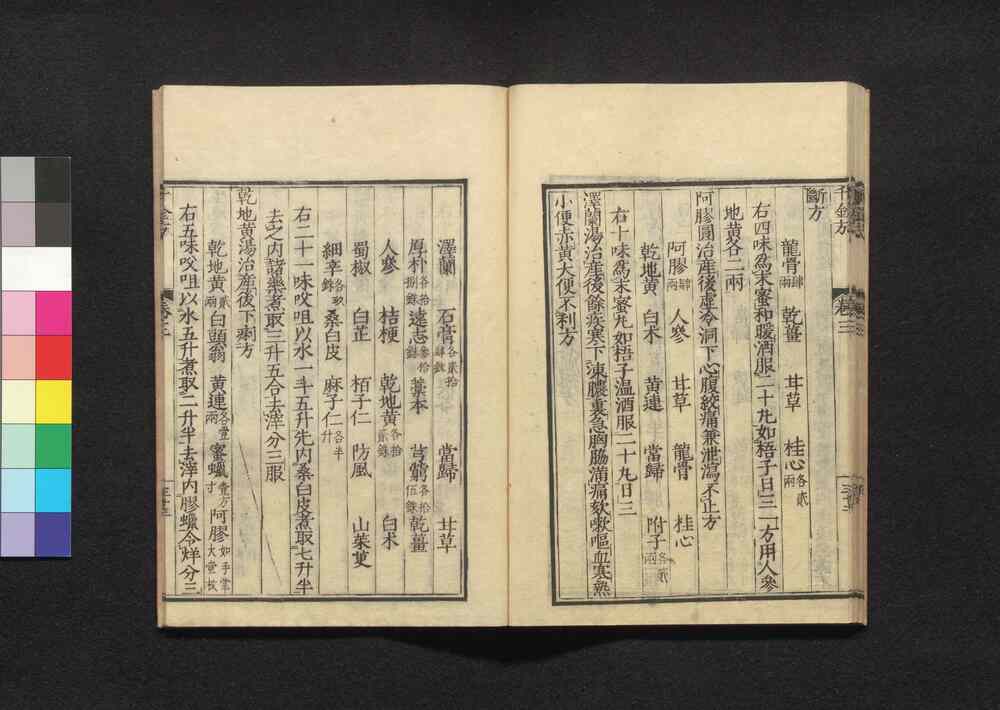 千金方 卷三
斷方
龍骨肆兩 乾薑 甘草 桂心各貳兩
右四味爲末蜜和暖酒服二十丸如梧子日三一方用人參
地黃各二兩
阿膠圓治産後虛冷洞下心腹絞痛兼泄瀉不止方
阿膠肆兩 人參 甘草 龍骨 桂心
乾地黃 白术 黃連 當歸 附子各貳兩
右十味爲末蜜丸如梧子温酒服二十丸日三
澤蘭湯治産後餘疾寒下凍膿裏急胸脇滿痛欬嗽嘔血寒熱
小便赤黃大便不利方
澤蘭 石膏各貳拾肆銖 當歸 甘草
厚朴各拾捌銖 遠志 藁本 芎藭各拾伍銖 乾薑
人參 桔梗 乾地黃各拾貳銖 白术
蜀椒 白芷 栢子仁 防風 山茱萸
細辛各玖銖 桑白皮 麻子仁各半升
右二十一味㕮咀以水一斗五升先内桑白皮煮取七升半
去之内諸藥煮取三升五合去滓分三服
乾地黃湯治産後下痢方
乾地黃貳兩 白頭翁 黃連各壹兩 蜜蠟壹方寸 阿膠如手掌大壹枚
右五味㕮咀以水五升煮取二升半去滓内膠蠟令烊分三
千金方 卷三